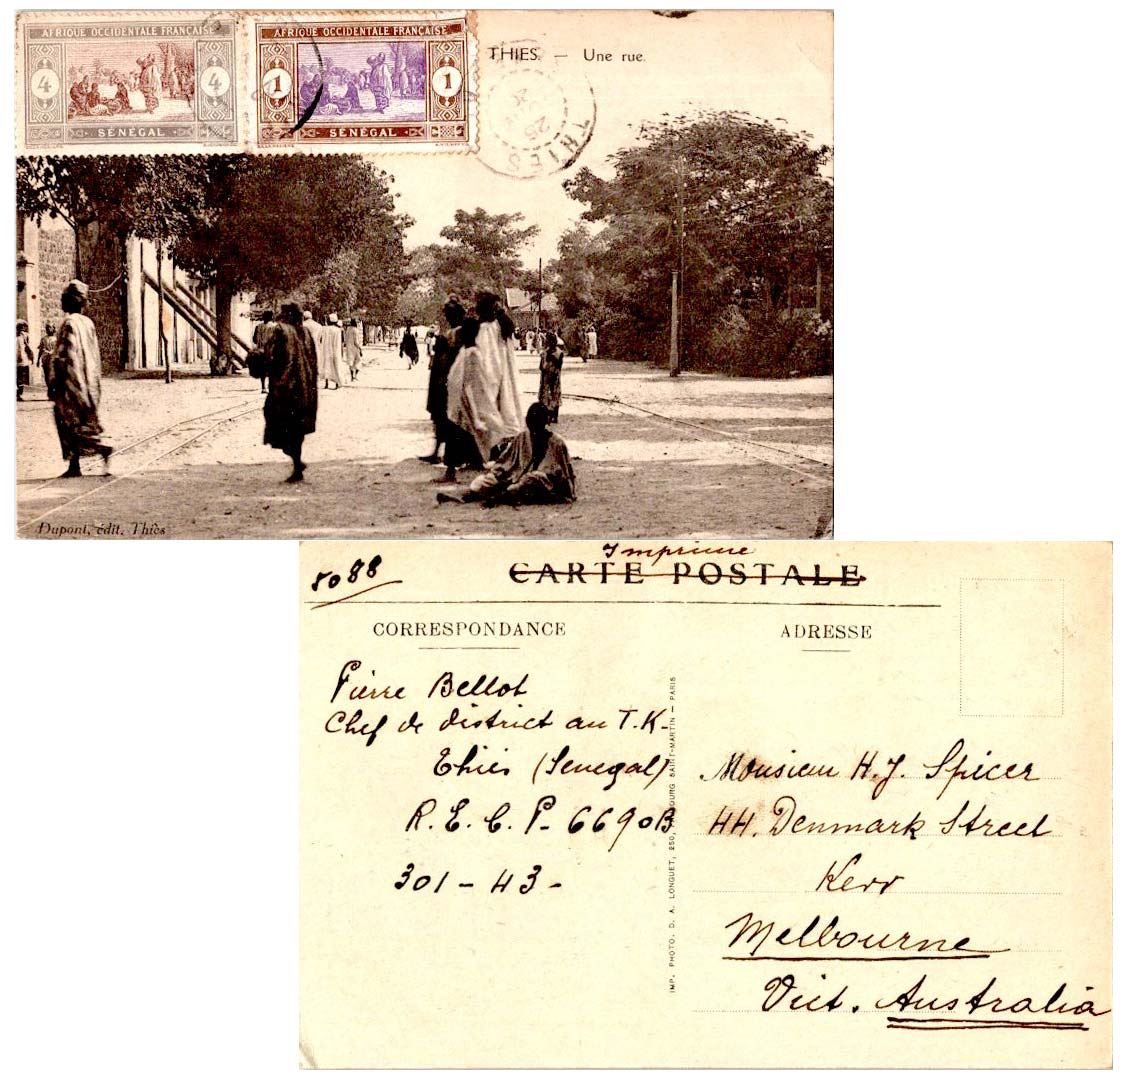 AFRIQUE OCCIDENTALE FRANÇAISE
4 4
SÉNÉGAL
AFRIQUE OCCIDENTALE FRANÇAISE
1 1
SÉNÉGAL
THIES. — Une rue.
25
THIES
Dupont, édit. Thiès
8088
Imprime
CARTE POSTALE
CORRESPONDANCE
ADRESSE
Pierre Bellot
Chef de district au T.K-
Thiès (Senegal)
R.E.C.P- 6690B
301-43-
IMP. PHOTO. D. A. LONGUET, 250, FAUBOURG SAINT-MARTIN — PARIS
Monsieur H.J. Spicer
44. Denmark Street
Kew
Melbourne
Vict. Australia